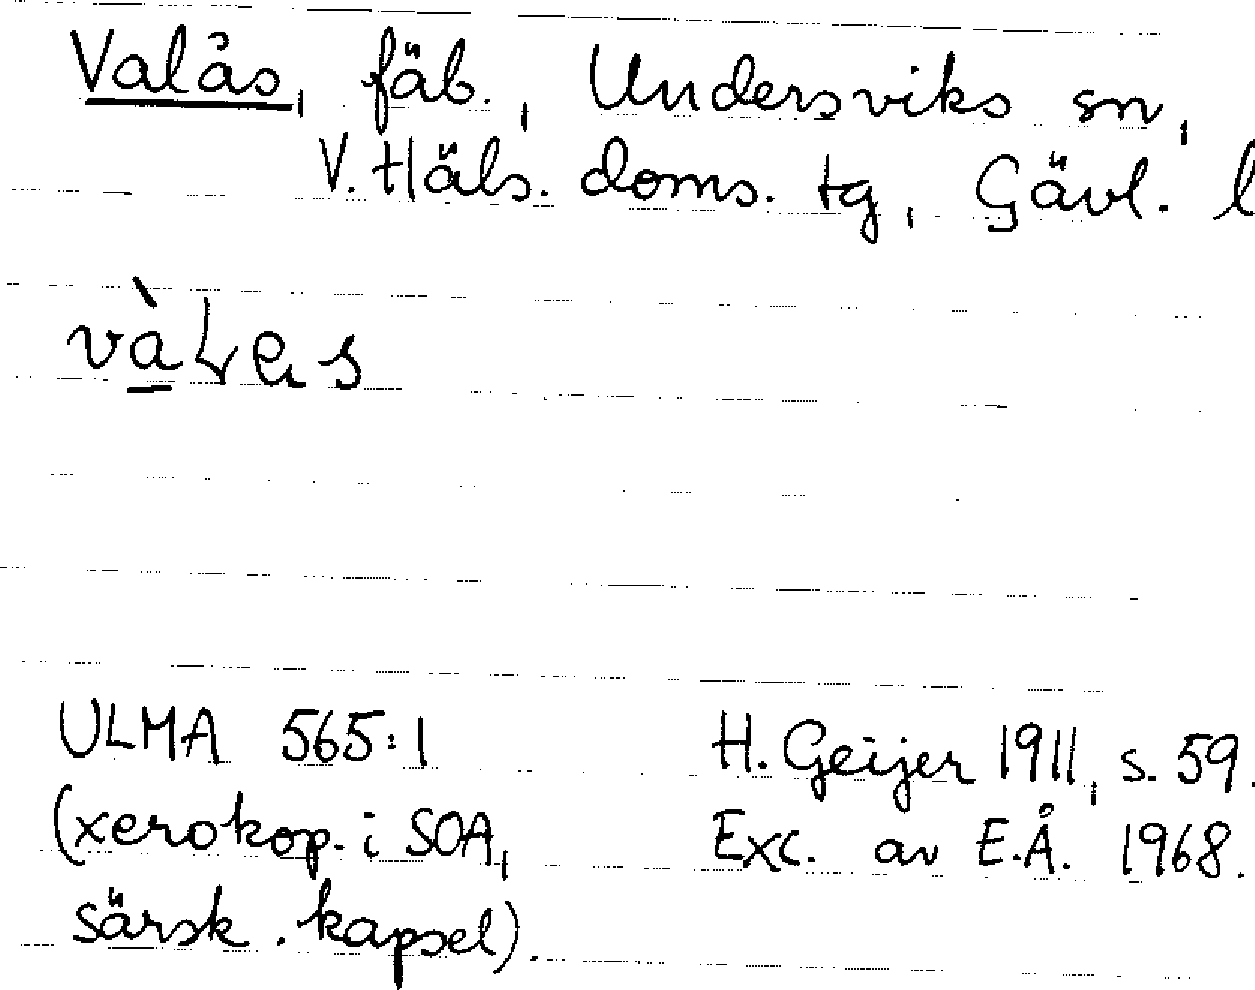 Valås, fäb., Undersviks sn,
V. Häls. doms. tg, Gävl. l
ULMA 565:1
(xerokop. i SOA,
särsk. kapsel).
H. Geijer 1911, s. 59.
Exc. av E.Å. 1968.